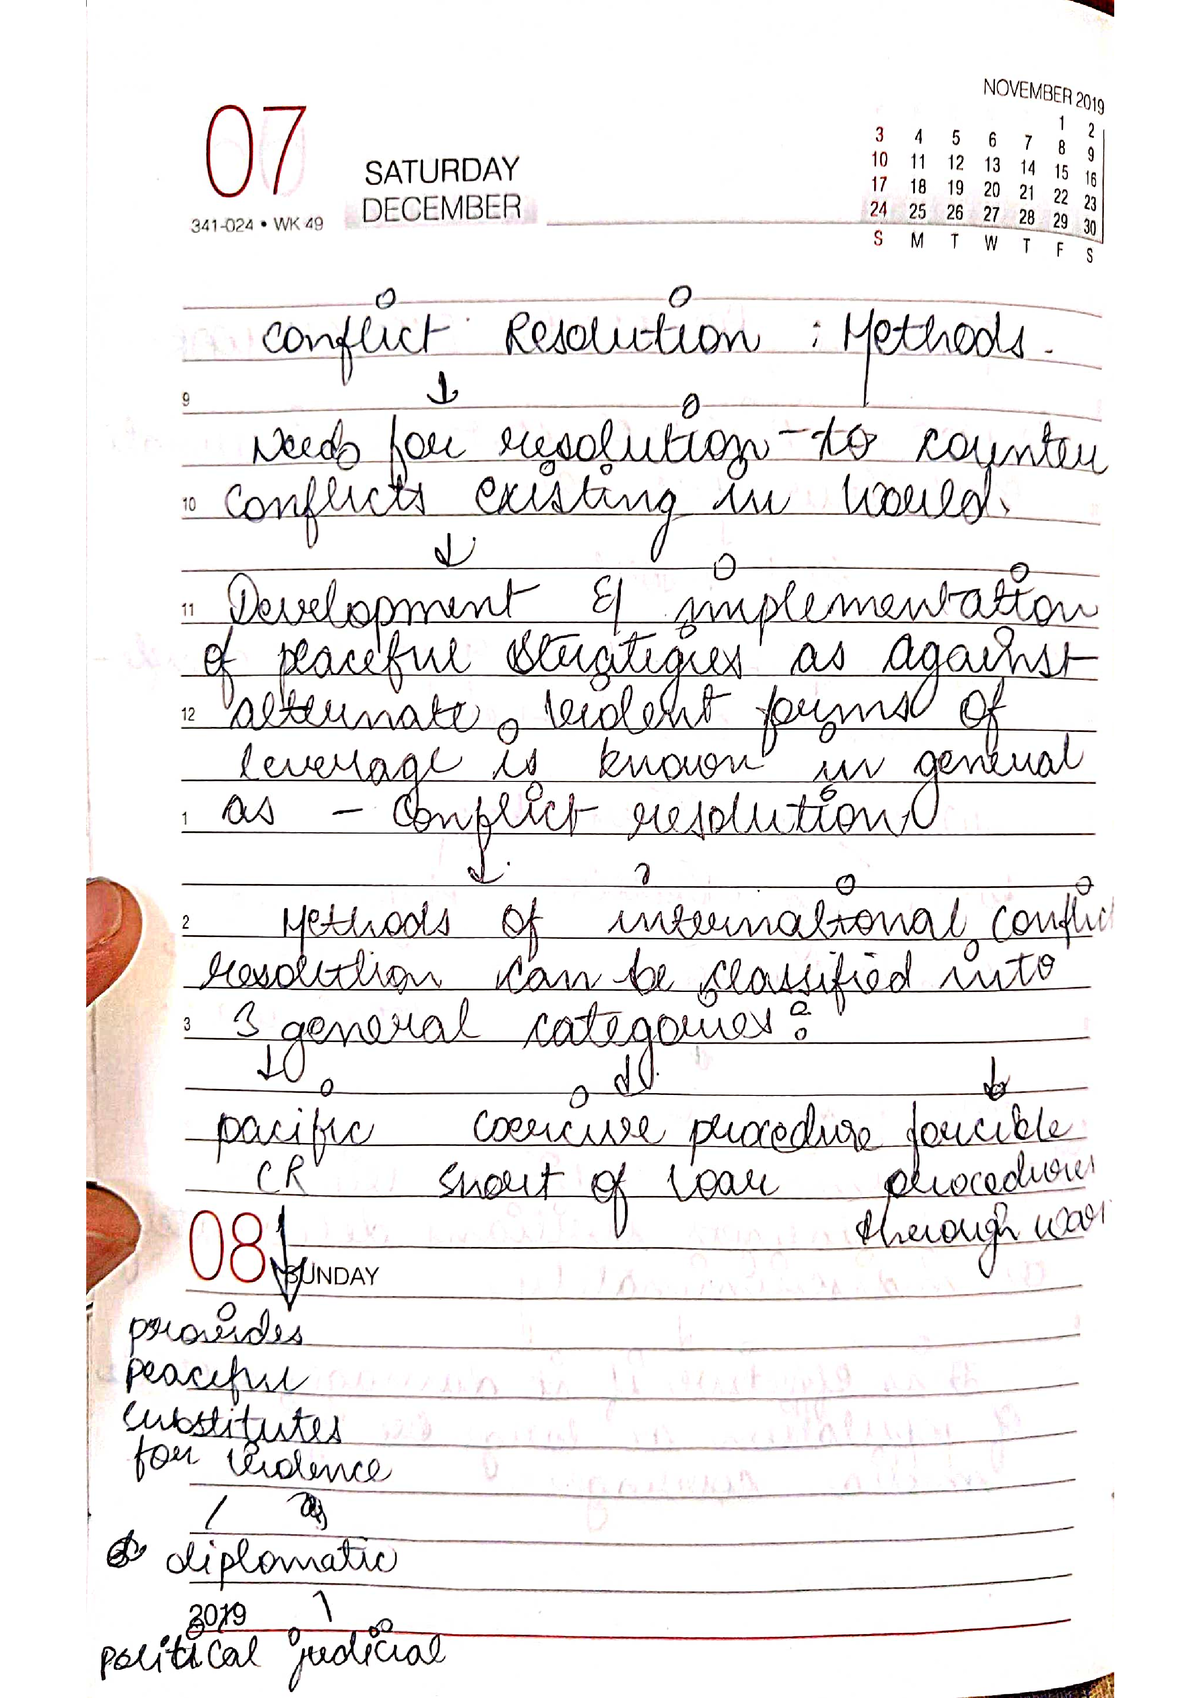 NOVEMBER 2019
1 2
3 4 5 6 7 8 9
10 11 12 13 14 15 16
17 18 19 20 21 22 23
24 25 26 27 28 29 30
S M T W T F S
07
SATURDAY
DECEMBER
341-024 • WK 49
Conflict Resolution : Methods.
9
Needs for resolution - to counter
10 conflicts existing in world.
11 Development & implementation
of peaceful strategies as against
12 alternate, violent forms of
leverage is known in general
1 as - conflict resolution
2 Methods of international conflict
resolution can be classified into
3 3 general categories:
pacific coercive procedure forcible
CR short of war procedures
through war
08
SUNDAY
provides
peaceful
substitutes
for violence
diplomatic
2019
political judicial